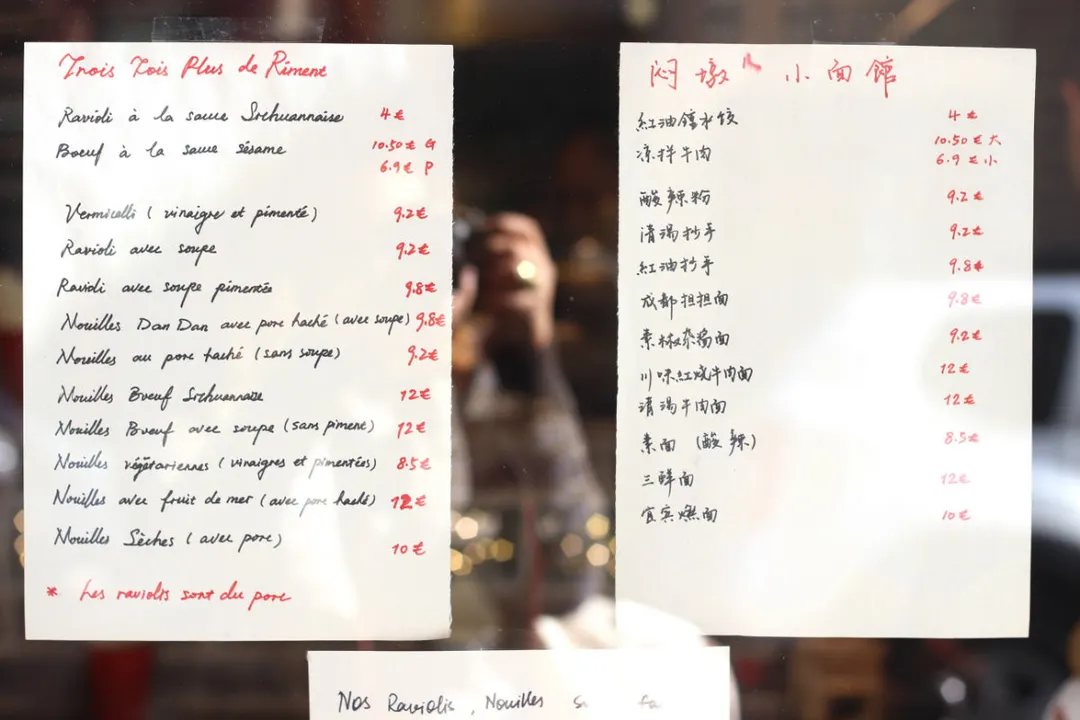 Trois Fois Plus de Piment
Ravioli à la sauce Sichuannaise 4€
Boeuf à la sauce sésame 10.50€ G
6.9€ P
Vermicelli ( vinaigre et pimenté) 9.2€
Ravioli avec soupe 9.2€
Ravioli avec soupe pimentée 9.8€
Nouilles Dan Dan avec porc haché (avec soupe) 9.8€
Nouilles au porc haché (sans soupe) 9.2€
Nouilles Boeuf Sichuannaise 12€
Nouilles Boeuf avec soupe (sans piment) 12€
Nouilles végétariennes ( vinaigres et pimentées) 8.5€
Nouilles avec fruit de mer (avec porc haché) 12€
Nouilles Sèches ( avec porc) 10€
* Les raviolis sont du porc
闷墩儿 小面馆
紅油鐘水饺 4€
凉拌牛肉 10.50€大
6.9€小
酸辣粉 9.2€
清湯抄手 9.2€
紅油抄手 9.8€
成都担担面 9.8€
素椒杂酱面 9.2€
川味紅燒牛肉面 12€
清湯牛肉面 12€
素面 (酸辣) 8.5€
三鲜面 12€
宜宾燃面 10€
Nos Raviolis , Nouilles